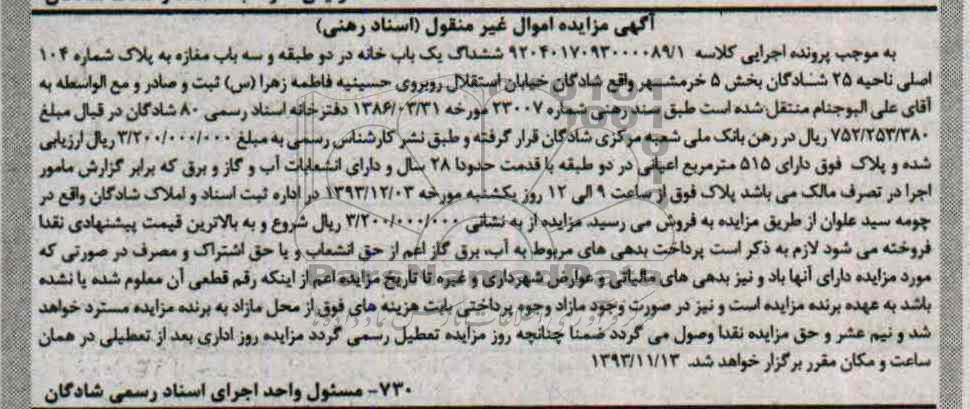 آگهی مزایده اموال غیر منقول (اسناد رهنی)
به موجب پرونده اجرایی کلاسه ۹۲۰۴۰۱۷۰۹۳۰۰۰۰۸۹/۱ ششداگ یک باب خانه در دو طبقه و سه باب مغازه به پلاک شماره ۱۰۴
اصلی ناحیه ۲۵ شادگان بخش ۵ خرمشهر واقع شادگان خیابان استقلال روبروی حسینیه فاطمه زهرا (س) ثبت و صادر و مع الواسطه به
آقای علی البوجنام منتقل شده است طبق سند رهنی شماره ۲۳۰۰۷ مورخه ۱۳۸۶/۰۳/۳۱ دفترخانه اسناد رسمی ۸۰ شادگان در قبال مبلغ
۷۵۲/۲۵۳/۳۸۰ ریال در رهن بانک ملی شعبه مرکزی شادگان قرار گرفته و طبق نشر کارشناس رسمی به مبلغ ۳/۲۰۰/۰۰۰/۰۰۰ ریال ارزیابی
شده و پلاک فوق دارای ۵۱۵ مترمربع اعیانی در دو طبقه با قدمت حدودا ۲۸ سال و دارای انشعابات آب و گاز و برق که برابر گزارش مامور
اجرا در تصرف مالک می باشد پلاک فوق از ساعت ۹ الی ۱۲ روز یکشنبه مورخه ۱۳۹۳/۱۲/۰۳ در اداره ثبت اسناد و املاک شادگان واقع در
چومه سید علوان از طریق مزایده به فروش می رسید. مزایده از به نشانی ۳/۲۰۰/۰۰۰/۰۰۰ ریال شروع و به بالاترین قیمت پیشنهادی نقدا
فروخته می شود لازم به ذکر است پرداخت بدهی های مربوط به آب، برق گاز اعم از حق انشعاب و یا حق اشتراک و مصرف در صورتی که
مورد مزایده دارای آنها باد و نیز بدهی های مالیاتی و عوارض شهرداری و غیره تا تاریخ مزایده اعم از اینکه رقم قطعی آن معلوم شده یا نشده
باشد به عهده برنده مزایده است و نیز در صورت وجود مازاد وجوه پرداختی بابت هزینه های فوق از محل مازاد به برنده مزایده مسترد خواهد
شد و نیم عشر و حق مزایده نقدا وصول می گردد ضمنا چنانچه روز مزایده تعطیل رسمی گردد مزایده روز اداری بعد از تعطیلی در همان
ساعت و مکان مقرر برگزار خواهد شد. ۱۳۹۳/۱۱/۱۳
۷۳۰- مسئول واحد اجرای اسناد رسمی شادگان